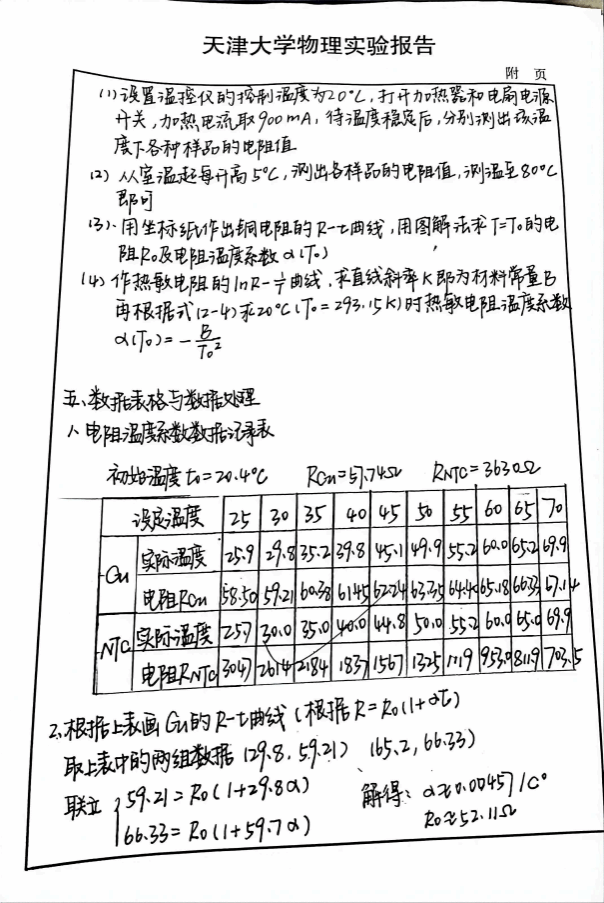 天津大学物理实验报告
附 页
(1)设置温控仪的控制温度为20°C，打开加热器和电扇电源
开关，加热电流取900mA，待温度稳定后，分别测出该温
度下各种样品的电阻值
(2) 从室温起每升高5°C，测出各样品的电阻值，测温至80°C
即可
(3)、用坐标纸作出铜电阻的R-t曲线，用图解法求T=T₀的电
阻R₀及电阻温度系数α(T₀)
(4) 作热敏电阻的lnR-1/T曲线，求直线斜率K即为材料常量B
再根据式(2-4)求20°C(T₀=293.15K)时热敏电阻温度系数
α(T₀)=-B/T₀²
五、数据表格与数据处理
1、电阻温度系数数据记录表
初始温度t₀=20.4°C RCu=57.74Ω RNTC=3630Ω
设定温度 25 30 35 40 45 50 55 60 65 70
Cu 实际温度 25.9 29.8 35.2 39.8 45.1 49.9 55.2 60.0 65.2 69.9
电阻RCu 58.50 59.21 60.38 61.45 62.24 63.35 64.45 65.18 66.33 67.14
NTC 实际温度 25.7 30.0 35.0 40.0 44.8 50.0 55.2 60.0 65.0 69.9
电阻RNTC 3047 2614 2184 1837 1567 1325 1119 953.0 811.9 703.5
2、根据上表画Cu的R-t曲线(根据R=R₀(1+αt)
取上表中的两组数据 (29.8, 59.21) (65.2, 66.33)
联立 { 59.21=R₀(1+29.8α) 解得: α≈0.00457/C°
66.33=R₀(1+59.7α) R₀≈52.11Ω